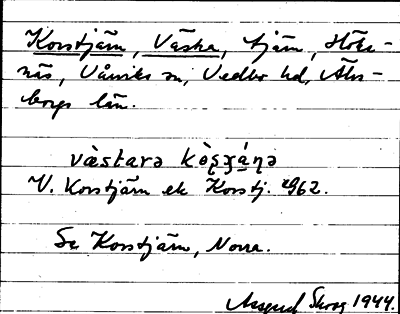 Korstjärn, Västra, tjärn, Höks-
näs, Vårviks sn, Vedbo hd, Älvs-
borgs län.
västarə kòʂʒá̱ɳə
V. Korstjärn ek Korstj. 1962.
Se Korstjärn, Norra.
Skog 1944.